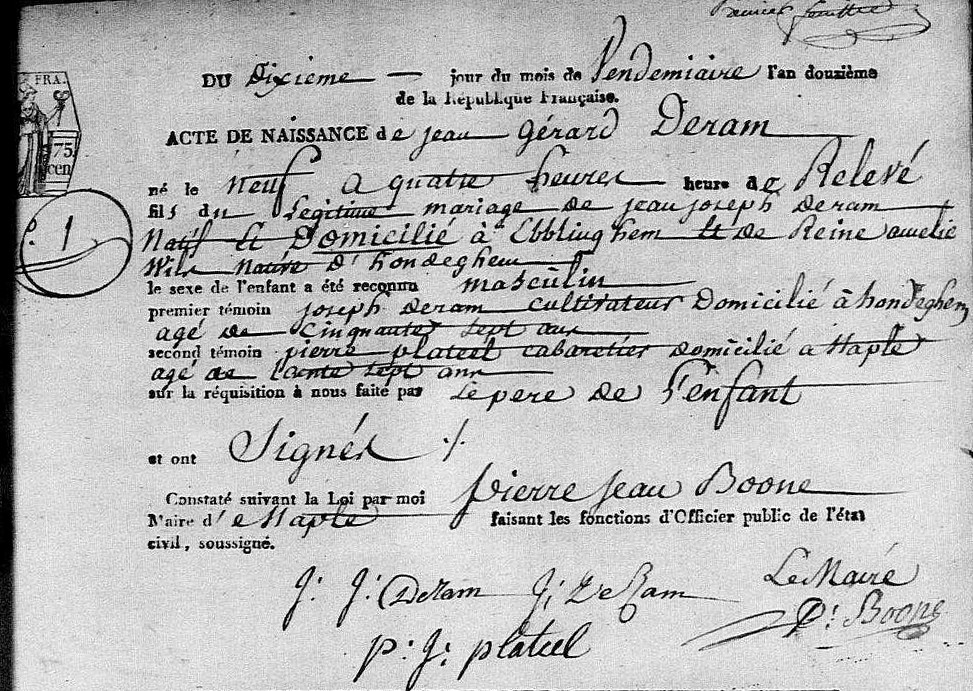 FRA.
75
cen
P. 1
DU Dixieme — jour du mois de Vendemiaire l'an douzième
de la République Française.
ACTE DE NAISSANCE de jean Gérard Deram
né le neuf a quatre heures heure de Relevé
fils du Legitime mariage de jean joseph deram
Natif Et Domicilié à Ebblinghem Et de Reine amelie
Wils Native d'hondeghem
le sexe de l'enfant a été reconnu masculin
premier témoin joseph deram cultivateur Domicilié à hondeghem
agé de Cinquante sept ans
second témoin pierre plateel cabaretier domicilié a Staple
agé de sept ans
sur la réquisition à nous faite par Le pere de l'enfant
et ont Signés ./.
Constaté suivant la Loi par moi pierre jean Boone
Maire d'e Staple faisant les fonctions d'Officier public de l'état
civil, soussigné.
J: J: Deram J: DeRam Le Maire
p: J: plateel P: Boone